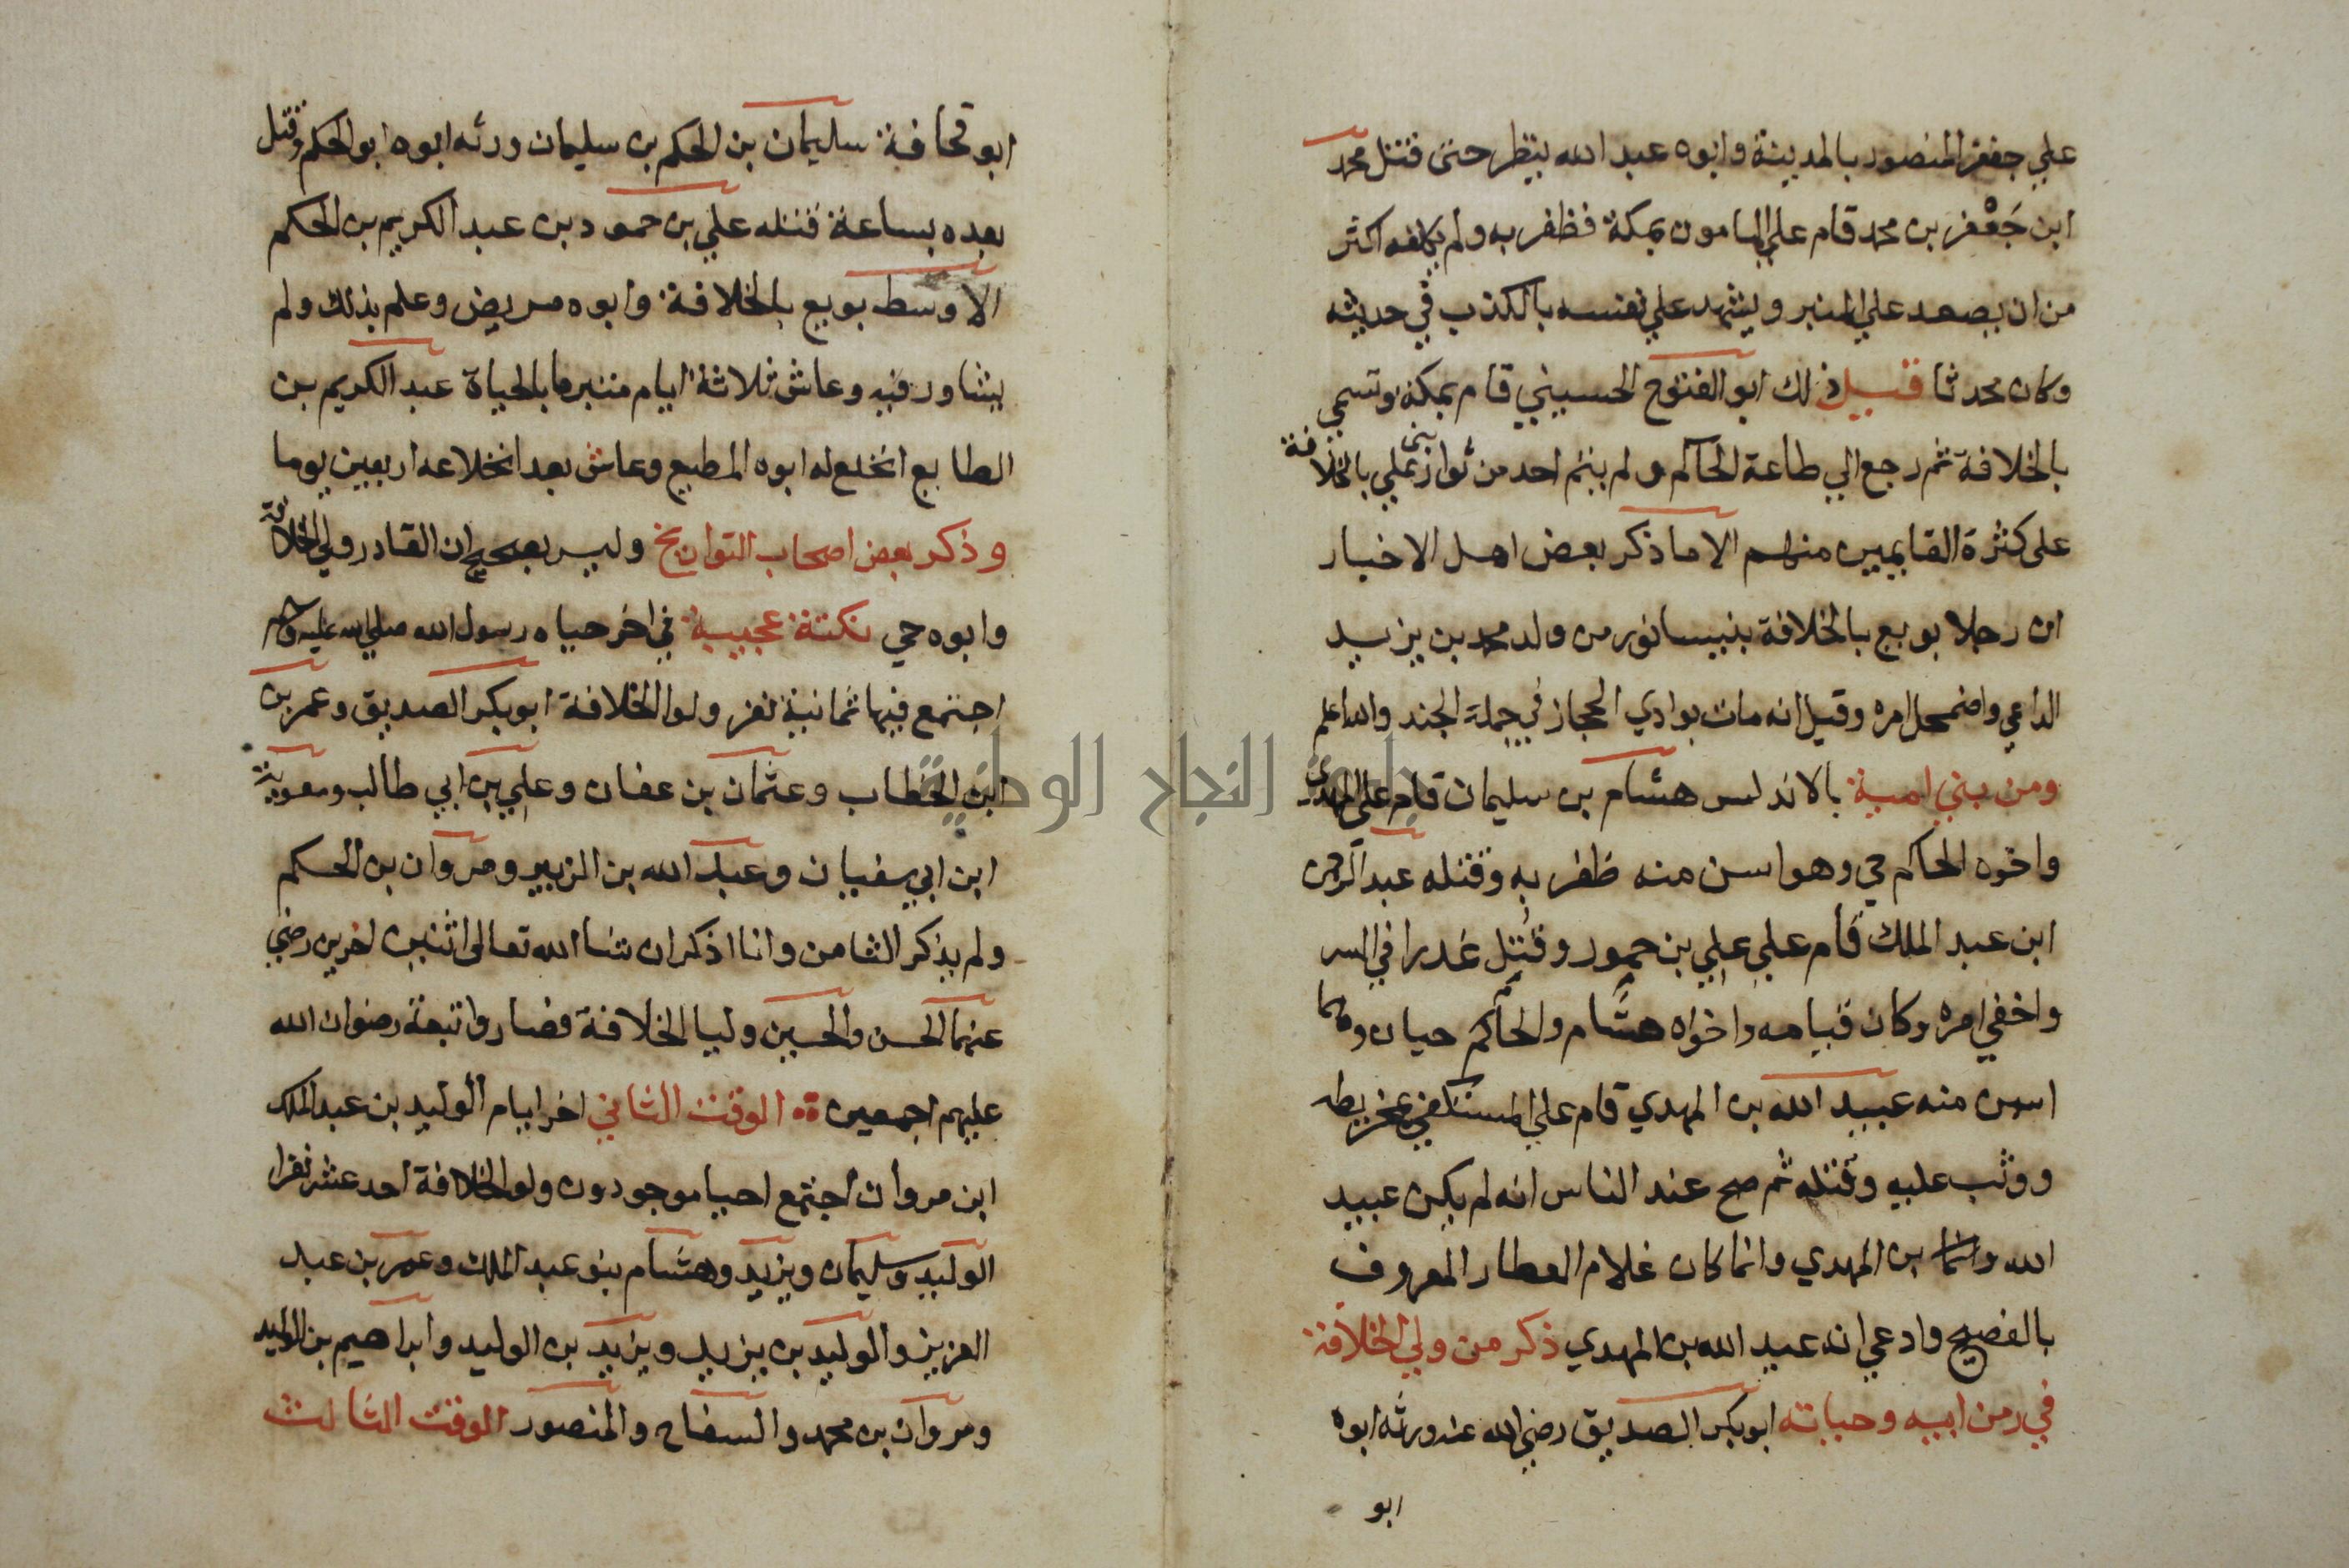 علي جعفر المنصور بالمدينة وابوه عبد الله ينتظر حتى قتل محمد
ابن جَعْفر بن محمد قام علي المامون بمكة فظفر به ولم يكلفه اكثر
من ان يصعد علي المنبر ويشهد علي نفسه بالكذب في حديثه
وكان محدثا قبيل ذلك ابو الفتوح الحسيني قام بمكة وتسمي
بالخلافة ثم رجع الي طاعة الحاكم ولم يتم احد من ثوار بني علي بالخلافة
على كثرة القايميين منهم الا ما ذكر بعض اهل الاخبار
ان رجلا بويع بالخلافة بنيسابور من ولد محمد بن يزيد
الداعي واضمحل امره وقيل انه مات بوادي الحجاز في جملة الجند والله اعلم
ومن بني امية بالاندلس هشام بن سليمان قام على المهدي
واخوه الحاكم حي وهو اسن منه ظفر به وقتله عبد الرحمن
ابن عبد الملك قام علي علي بن حمود وقُتِل غدرا في السر
واخفي امره وكان قيامه واخواه هشام والحاكم حيان وهما
اسن منه عبيد الله بن المهدي قام علي المستكفي
ووثب عليه وقتله ثم صح عند الناس انه لم يكن عبيد
الله وانما بن المهدي وانما كان غلام العطار المعروف
بالفصيح وادعي انه عبيد الله بن المهدي ذكر من ولي الخلافة
في زمن ابيه وحياته ابو بكر الصديق رضي الله عنه ورثه ابوه
ابو
ابو قحافة سليمان بن الحكم بن سليمان ورثه ابوه ابو الحكم وقتل
بعده بساعة قتله علي بن حمود بن عبد الكريم بن الحكم
الاوسط بويع بالخلافة وابوه مريض وعلم بذلك ولم
يشاور فيه وعاش ثلاثة ايام متبرما بالحياة عبد الكريم بن
الطايع انخلع له ابوه المطيع وعاش بعد انخلاعه اربعين يوما
وذكر بعض اصحاب التواريخ وليس بصحيح ان القادر ولي الخلافة
وابوه حي نكتة عجيبة في اخر حياه رسول الله صلي الله عليه وسلم
اجتمع فيها ثمانية نفر ولوا الخلافة ابو بكر الصديق وعمر بن
ابن الخطاب وعثمان بن عفان وعلي بن ابي طالب ومعوية
ابن ابي سفيان وعبد الله بن الزبير ومروان بن الحكم
ولم يذكر الثامن وانا اذكر ان شا الله تعالى اثنين اخرين رضي
عنهما الحسن والحسين وليا الخلافة فصاروا تبعة رضوان الله
عليهم اجمعين الوقت الثاني اخر ايام الوليد بن عبد الملك
ابن مروان اجتمع احيا موجودون ولو الخلافة احد عشر نفرا
الوليد وسليمان ويزيد وهشام بنو عبد الملك وعمر بن عبد
العزيز والوليد بن يزيد ويزيد بن الوليد وابراهيم بن الوليد
ومروان بن محمد والسفاح والمنصور الوقت الثالث
جامعة النجاح الوطنية